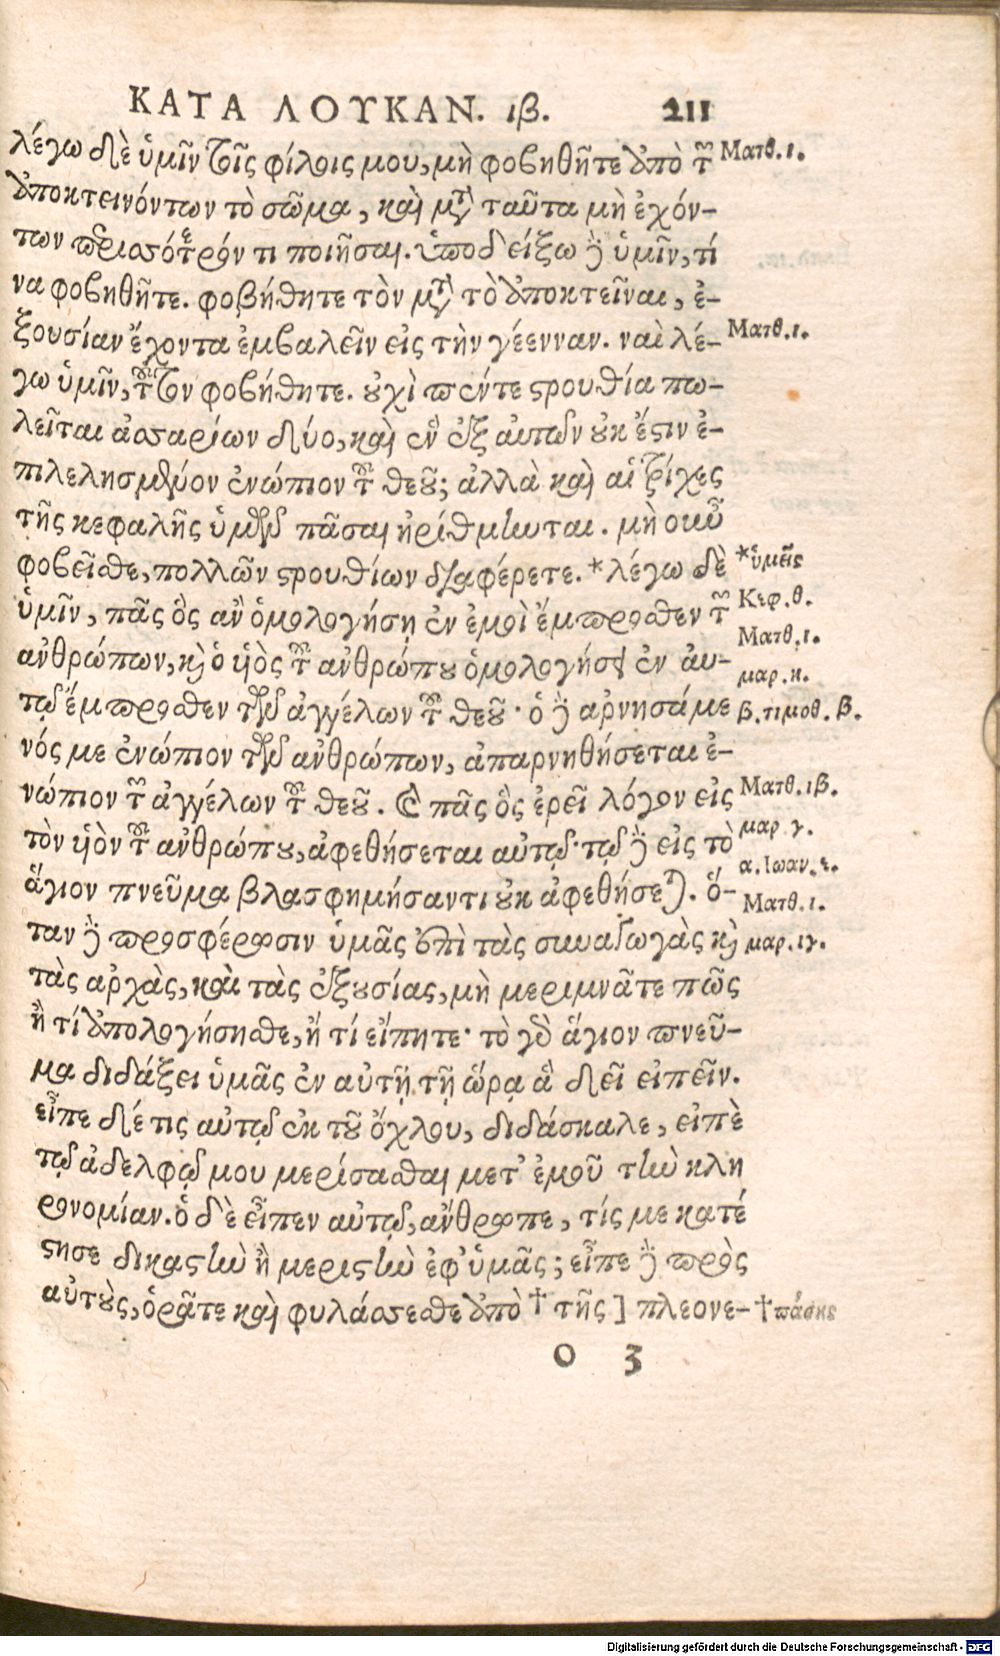 ΚΑΤΑ ΛΟΥΚΑΝ. ιβ. 211
λέγω δὲ ὑμῖν τοῖς φίλοις μου, μὴ φοβηθῆτε ἀπὸ τῶν Ματθ. ι.
ἀποκτεινόντων τὸ σῶμα, καὶ μετὰ ταῦτα μὴ ἐχόν-
των περισσότερόν τι ποιῆσαι. ὑποδείξω δὲ ὑμῖν, τί
να φοβηθῆτε. φοβήθητε τὸν μετὰ τὸ ἀποκτεῖναι, ἐ-
ξουσίαν ἔχοντα ἐμβαλεῖν εἰς τὴν γέενναν. ναὶ λέ- Ματθ. ι.
γω ὑμῖν, τοῦτον φοβήθητε. οὐχὶ πέντε στρουθία πω-
λεῖται ἀσσαρίων δύο, καὶ ἓν ἐξ αὐτῶν οὐκ ἔστιν ἐ-
πιλελησμένον ἐνώπιον τοῦ θεοῦ; ἀλλὰ καὶ αἱ τρίχες
τῆς κεφαλῆς ὑμῶν πᾶσαι ἠρίθμηνται. μὴ οὖν
φοβεῖσθε, πολλῶν στρουθίων διαφέρετε. * λέγω δὲ * ὑμεῖς
ὑμῖν, πᾶς ὃς ἂν ὁμολογήσῃ ἐν ἐμοὶ ἔμπροσθεν τῶν Κεφ. θ.
ἀνθρώπων, καὶ ὁ υἱὸς τοῦ ἀνθρώπου ὁμολογήσει ἐν αὐ- Ματθ. ι. μαρ. η.
τῷ ἔμπροσθεν τῶν ἀγγέλων τοῦ θεοῦ· ὁ δὲ ἀρνησάμε β. τιμοθ. β.
νός με ἐνώπιον τῶν ἀνθρώπων, ἀπαρνηθήσεται ἐ-
νώπιον τῶν ἀγγέλων τοῦ θεοῦ. Καὶ πᾶς ὃς ἐρεῖ λόγον εἰς Ματθ. ιβ.
τὸν υἱὸν τοῦ ἀνθρώπου, ἀφεθήσεται αὐτῷ· τῷ δὲ εἰς τὸ μαρ. γ. α. Ιωαν. ε.
ἅγιον πνεῦμα βλασφημήσαντι οὐκ ἀφεθήσεται. ὅ- Ματθ. ι.
ταν δὲ προσφέρωσιν ὑμᾶς ἐπὶ τὰς συναγωγὰς καὶ μαρ. ιγ.
τὰς ἀρχὰς, καὶ τὰς ἐξουσίας, μὴ μεριμνᾶτε πῶς
ἢ τί ἀπολογήσησθε, ἢ τί εἴπητε· τὸ γὰρ ἅγιον πνεῦ-
μα διδάξει ὑμᾶς ἐν αὐτῇ τῇ ὥρᾳ ἃ δεῖ εἰπεῖν.
εἶπε δέ τις αὐτῷ ἐκ τοῦ ὄχλου, διδάσκαλε, εἰπὲ
τῷ ἀδελφῷ μου μερίσασθαι μετ' ἐμοῦ τὴν κλη
ρονομίαν. ὁ δὲ εἶπεν αὐτῷ, ἄνθρωπε, τίς με κατέ
στησε δικαστὴν ἢ μεριστὴν ἐφ' ὑμᾶς; εἶπε δὲ πρὸς
αὐτοὺς, ὁρᾶτε καὶ φυλάσσεσθε ἀπὸ † τῆς ] πλεονε- † πάσης
O 3
Digitalisierung gefördert durch die Deutsche Forschungsgemeinschaft - DFG